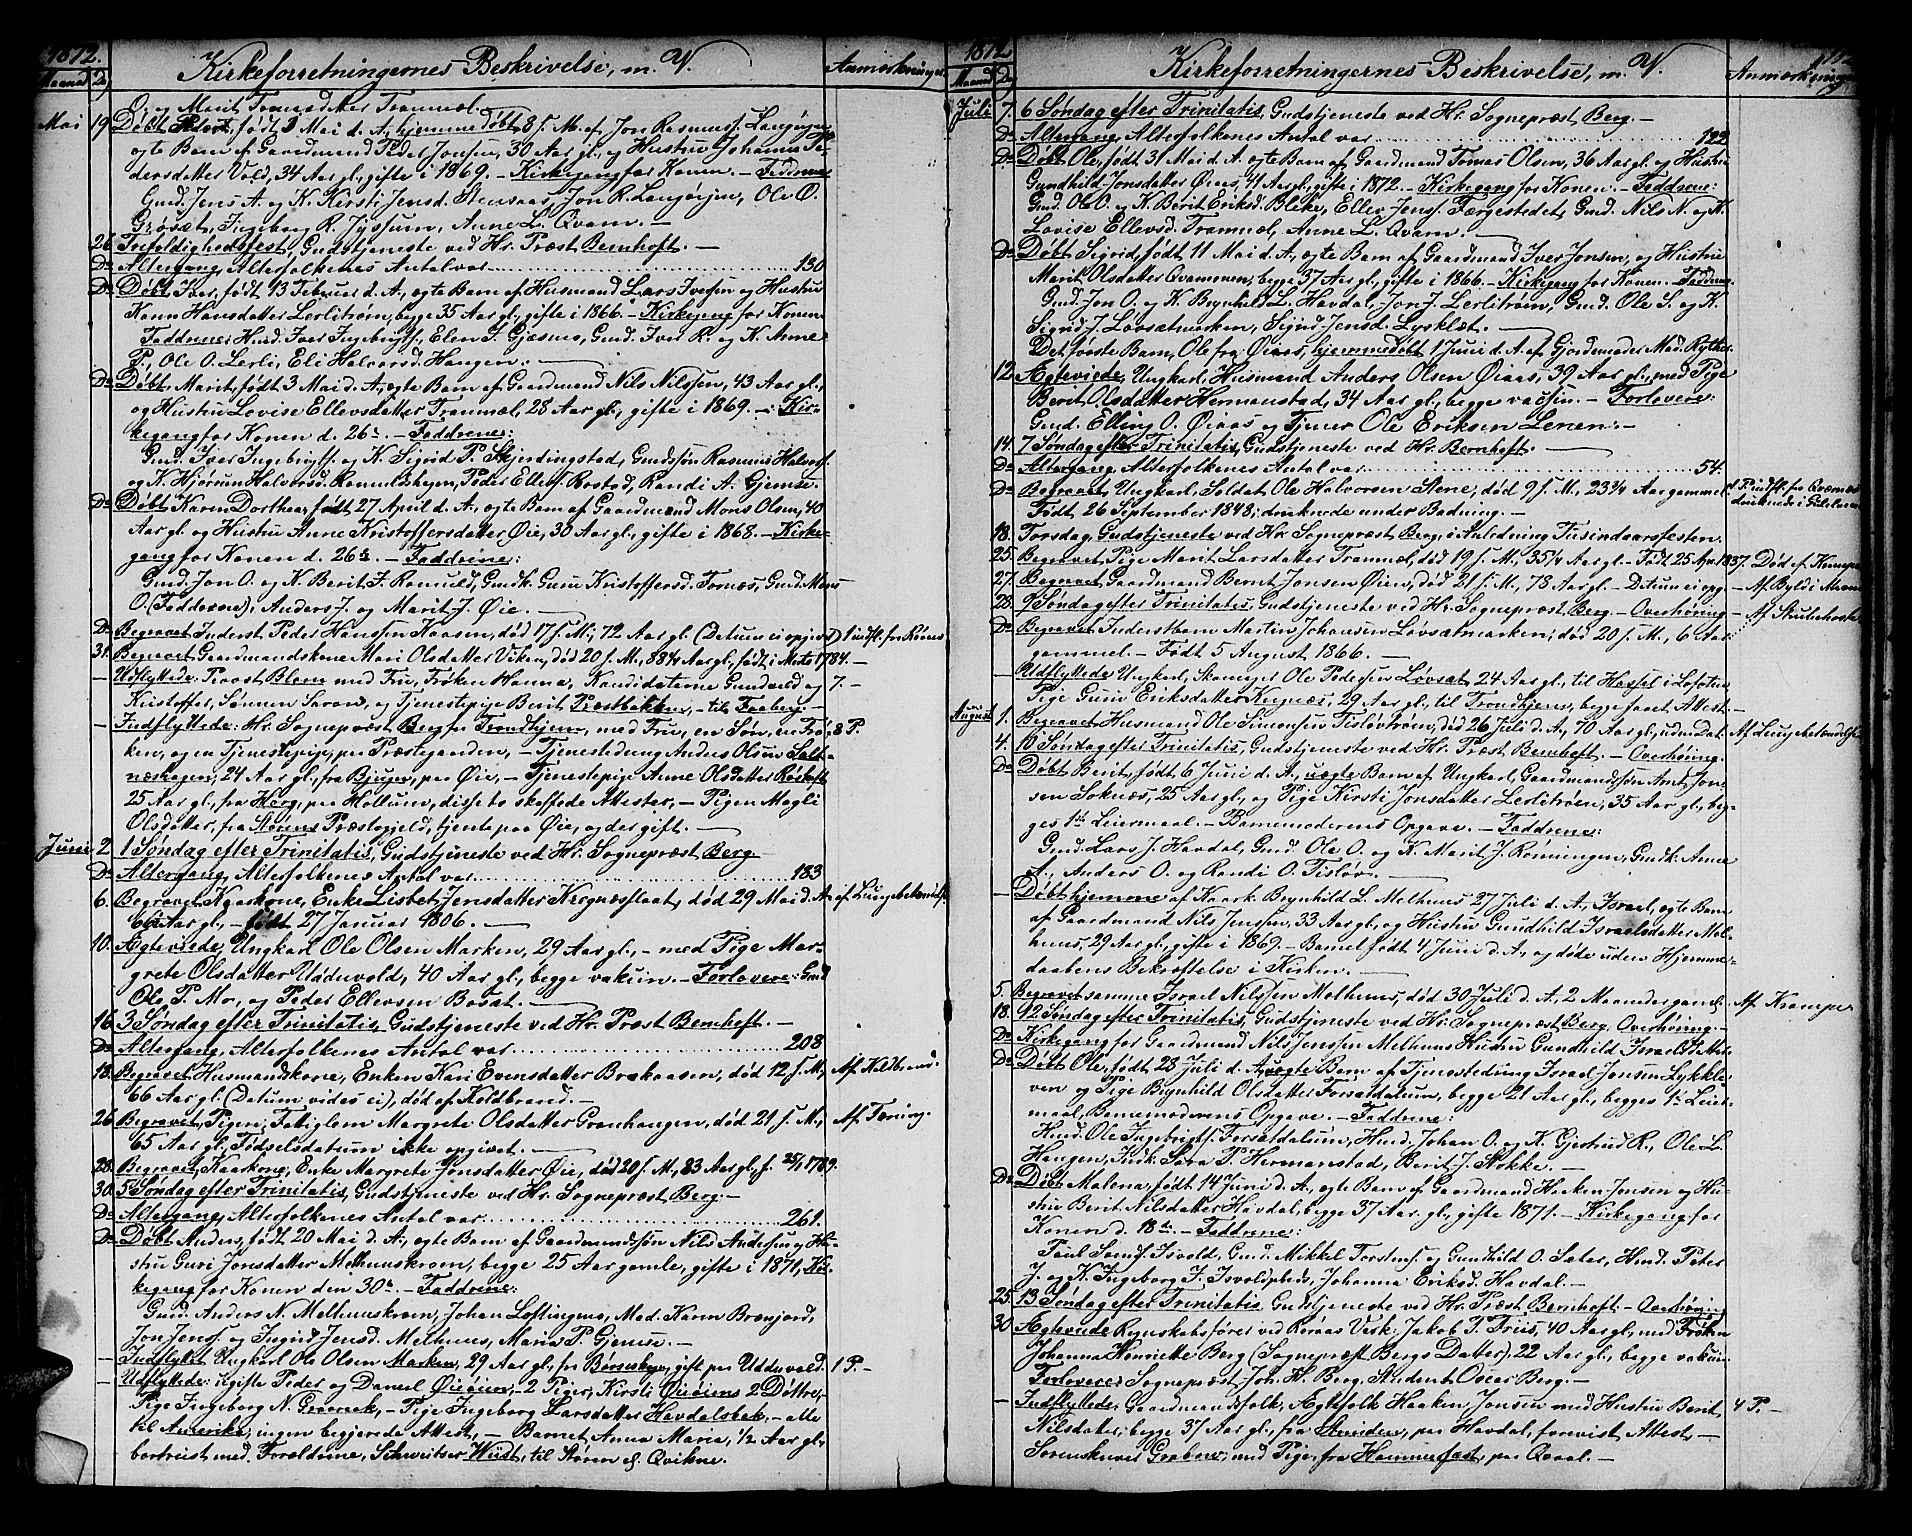 1872.
Maaned D. Kirkeforretningernes Beskrivelse, m. V. Anmærkninger
O. og Marit Tomasdatter Trammæl.
Mai 19. Døbt Peder, født 3 Mai d. A., hjemmedøbt 8 s. M. af Jon Rasmuss. Langørgen,
ægte Barn af Gaardmand Peder Jonsen, 30 Aar gl., og Hustru Johanna Pe-
dersdatter Vold, 34 Aar gl., gifte i 1869. – Kirkegang for Konen. – Faddrene:
Gmd. Jens A. og K. Kirsti Jensd. Stensaas, Jon R. Langørjen, Ole O.
Grøvset, Ingeborg R. Jyssum, Anne L. Qvam. –
26. Trefoldighedsfest, Gudstjeneste ved Hr. Præst Bernhoft. –
Do Altergang, Alterfolkenes Antal var 130
Do Døbt Iver, født 13 Februar d. A., ægte Barn af Husmand Lars Iversen og Hustru
Karen Hansdatter Lerlitrøen, begge 35 Aar gl., gifte i 1866. – Kirkegang for Konen.
Faddrene: Husd. Iver Ingebrigts., Elen I. Gjæsnes, Gmd. Iver R. og K. Anne
P., Ole O. Lerli, Eli Halvorsd. Haugen. –
Do Døbt Marit, født 3 Mai d. A., ægte Barn af Gaardmand Nils Nilssen, 43 Aar gl.,
og Hustru Lovise Ellevsdatter Trammæl, 28 Aar gl., gifte i 1869. – Kir-
kegang for Konen d. 26de. – Faddrene:
Gmd. Iver Ingebrigts. og K. Sigrid P. Skjerdingstad, Gmdssøn Rasmus Halvors.
og K. Hjørun Halvorsd. Ramnlshejm, Peder Ellefs. Rostad, Randi A. Gjemse.
Do Døbt Karen Dorthea, født 27 April d. A., ægte Barn af Gaardmand Mons Olsen, 40
Aar gl. og Hustru Anne Kristoffersdatter Øie, 30 Aar gl., gifte i 1868. – Kirke-
gang for Konen d. 26de. – Faddrene:
Gmd. Jon O. og K. Berit I. Ramvld, Gmdk. Guru Kristoffersd. Fornæs, Gmd. Mons
O. (Fadderne), Anders J. og Marit J. Øie. –
Do Begravet Inderst Peder Hanssen Kaasen, død 17 s. M., 72 Aar gl. (Datum ei opgivet) Indfl. fra Rønes
31. Begravet Gaardmandskone Mari Olsdatter Viken, død 20 s. M., 88¼ Aar gl., født i Mets 1784. –
– Udflyttede: Provst Blom med Fru, Frøken Hanna, Kandidaterne Gudmund og 7. –
Kristoffer, Sønnen Søren, og Tjenestepige Berit Præstbakken, – til Faaberg. –
– Indflyttede: Hr. Sognepræst Berg fra Trondhjem, med Fru, en Søn, en Frø- 8 P.
ken, og en Tjenestepige, paa Præstegaarden, – Tjenestedreng Anders Olsen Salt-
næshagen, 24 Aar gl., fra Bjugn, paa Øie, – Tjenestepige Anne Olsdatter Røstaft,
25 Aar gl., fra Horg, paa Hollum, disse to skaffede Attester, – Pigen Magli
Olsdatter, fra Størens Præstegjeld, tjente paa Øie, og der gift. –
Juni 2. 1 Søndag efter Trinitatis, Gudstjeneste ved Hr. Sognepræst Berg.
Do Altergang, Alterfolkenes Antal var 183
6. Begravet Kaarkone, Enke Lisbet Jensdatter Kregnæsflaat, død 29 Mai d. A. af Lungebetændelse
66 Aar gl., – født 27 Januar 1806. –
10. Ægteviede, Ungkarl Ole Olsen Marken, 29 Aar gl., – med Pige Mar-
grete Olsdatter Udduvold, 40 Aar gl., begge vakcin. – Forlovere: Gmd.
Ole P. Mo, og Peder Ellevsen Bosat. –
16. 3 Søndag efter Trinitatis, Gudstjeneste ved Hr. Præst Bernhoft. –
Do Altergang, Alterfolkenes Antal var 208
18. Begravet Husmandskone, Enken Kari Evensdatter Brekaasen, død 12 s. M., Af Koldbrand.
66 Aar gl. (Datum vides ei), død af Koldbrand. –
26. Begravet, Pigen, Fatiglem Margrete Olsdatter Granhaugen, død 21 s. M., Af Tæring.
65 Aar gl., Fødselsdatum ikke opgivet. –
28. Begravet, Kaarkone, Enke Margrete Jonsdatter Øie, død 20 s. M., 83 Aar gl., f. 25/1 1789.
30. 5 Søndag efter Trinitatis, Gudstjeneste ved Hr. Sognepræst Berg. –
Do Altergang, Alterfolkenes Antal var 261.
Do Døbt Anders, født 20 Mai d. A., ægte Barn af Gaardmandssøn Nils Andersen og Hu-
stru Guri Jonsdatter Melhuuskrem, begge 25 Aar gamle, gifte i 1871, Kir-
kegang for Konen den 30te. – Faddrene:
Gmd. Anders N. Melhuuskrem, Johan Loftingmo, Mad. Karen Brenjord,
Jon Jens. og Ingrid Jensd. Melhuus, Maria P. Gjemse. –
– Indflyttet Ungkarl Ole Olsen Marken, 29 Aar gl., fra Børseskogn, gift paa Udduvold. 1 P. –
– Udflyttede: ugifte Peder og Daniel Øieøien, – 2 Piger, Kirsti Øieøiens 2 Døttre,
Pige Ingeborg N. Gravraak, – Pige Ingeborg Larsdatter Havdalsbak, – alle
til Amerika, ingen begjærede Attest, – Barnet Anna Maria, ½ Aar gl.,
bortreist med Forældrene, Schweitser Wüdt, til Støren el. Qvikne.
1872.
Maaned D. Kirkeforretningernes Beskrivelse, m. V. Anmærkninger
Juli 7. 6 Søndag efter Trinitatis, Gudstjeneste ved Hr. Sogneprest Berg. –
Do Altergang, Alterfolkenes Antal var 122
Do Døbt Ole, født 31 Mai d. A. ægte Barn af Gaardmand Tomas Olsen, 36 Aar gl. og Hustru
Gundhild Jonsdatter Øiaas, 41 Aar gl., gifte i 1872. – Kirkegang for Konen. – Faddrene:
Gmd. Ole O. og K. Berit Eriksd. Bleke, Ellev Jens. Færgestedet, Gmd. Nils N. og K.
Lovise Ellevsd. Trammæl, Anne L. Qvam. –
Do Døbt Sigrid, født 11 Mai d. A., ægte Barn af Gaardmand Iver Jonsen, og Hustru
Marit Olsdatter Qvammen, begge 37 Aar gl., gifte i 1866. – Kirkegang for Konen. – Faddrene:
Gmd. Jon O. og K. Brynhild L. Havdal, Jon J. Lerlitrøen, Gmd. Ole S. og K.
Sigrid J. Løvsætmarken, Sigrid Jensd. Lysklæt. –
Det første Barn, Ole fra Øiaas, hjemmedøbt 1 Juni d. A. af Gjordemoder Mad. Rytter.
12. Ægteviede, Ungkarl, Husmand Anders Olsen Øiaas, 39 Aar gl., med Pige
Berit Olsdatter Hermanstad, 34 Aar gl., begge vaccin. – Forlovere:
Gmd. Elling O. Øiaas og Tjener Ole Eriksen Lenen. –
14. 7 Søndag efter Trinitatis, Gudstjeneste ved Hr. Bernhoft. –
Do Altergang, Alterfolkenes Antal var 54.
Do Begravet, Ungkarl, Soldat Ole Halvorsen Stene, død 9 s. M., 23¾ Aar gammel.
Født 26 September 1848; druknede under Badning. –
18. Torsdag, Gudstjeneste ved Hr. Sogneprest Berg i Anledning Tusindaarsfesten.
25. Begravet Pige Marit Larsdatter Trammæl, død 19 s. M., 35¼ Aar gl. – Født 25 Apr. 1837. Død af Krampe
27. Begravet Gaardmand Bernt Jonsen Øien, død 21 s. M., 78 Aar gl. – Datum ei opg. – Af Byld i Maven
28. 9 Søndag efter Trinitatis, Gudstjeneste ved Hr. Sogneprost Berg. – Overhøring. – Af Strubehoste
Do Begravet Inderstbarn Martin Johansen Løvsætmarken, død 20 s. M., 6 Aar
gammel. – Født 5 August 1866. –
– Udflyttede Ungkarl, Skomager Ole Pedersen Løvsat, 24 Aar gl., til Hassel i Lofoten,
Pige Guru Eriksdatter Kregnæs, 29 Aar gl., til Trondhjem, begge faaet Attest. –
August 1. Begravet Husmand Ole Simonsen Tisløvtrøen, død 26 Juli d. A., 70 Aar gl., uden Dat. Af Lungebetændelse
4. 10 Søndag efter Trinitatis, Gudstjeneste ved Hr. Præst Bernhoft. – Overhøring.
Do Døbt Berit, født 6 Juni d. A., uægte Barn af Ungkarl, Gaardmandssøn Arnt Jon-
sen Soknæs, 25 Aar gl., og Pige Kirsti Jonsdatter Lerlitrøen, 35 Aar gl., beg-
ges 1ste Leiermaal. – Barnemoderens Opgave. – Faddrene:
Gmd. Lars J. Havdal, Gmd. Ole O. og K. Marit J. Rønningen, Gmdk. Anne
A., Anders O. og Randi O. Tisløv. –
– Døbt hjemme af Kaark. Brynhild L. Melhuus 27 Juli d. A., Israel, ægte Barn
af Gaardmand Nils Jenssen, 33 Aar gl., og Hustru Gundhild Israelsdatter Mel-
huus, 29 Aar gl., gifte i 1869. – Barnet født 4 Juni d. A., og døde uden Hjemme-
daabens Bekræftelse i Kirken. –
5. Begravet samme Israel Nilssen Melhuus, død 30 Juli d. A., 2 Maander gand. Af Krampe
18. 12 Søndag efter Trinitatis, Gudstjeneste ved Hr. Sogneprest Berg, Overhøring. –
Do Kirkegang for Gaardmand Nils Jenssen Melhuus Hustru Gundhild Israelsdatter.
Do Døbt Ole, født 28 Juli d. A., uægte Barn af Tjenestedreng Israel Jonsen Lykkle-
ven og Pige Brynhild Olsdatter Forsætdalum, begge 21 Aar gl., begges 1ste Leier-
maal, Barnemoderens Opgave. – Faddrene:
Husd. Ole Ingebrigts. Forsætdalum, Husd. Johan O. og K. Gjertrud R., Ole L.
Haugen, Indk. Sara P. Hermanstad, Berit J. Stokke. –
Do Døbt Malena, født 14 Juni d. A., ægte Barn af Gaardmand Haaken Jonsen og Hu-
stru Berit Nilsdatter Havdal, begge 37 Aar gl., gifte 1871. – Kirkegang for
Konen d. 18de. – Faddrene:
Paul Svends. Isvold, Gmd. Mikkel Torstens. og Gundhild O. Sater, Husd. Peter
J. og K. Ingeborg J. Isvoldplads, Johanna Eriksd. Havdal. –
25. 13 Søndag efter Trinitatis, Gudstjeneste ved Hr. Præst Bernhoft. – Overhøring
30. Ægteviede Regnskabsfører ved Røraas Verk: Jakob P. Friis, 40 Aar gl., med Frøken
Johanna Henriette Berg (Sogneprest Bergs Datter), 22 Aar gl., begge vakcin.
Forlovere: Sogneprest Joh. H. Berg, Student Oscar Berg. –
– Indflyttede, Gaardmandsfolk, Ægtefolk Haaken Jonsen med Hustru Berit 4 P. –
Nilsdatter, begge 37 Aar gl., fra Strinden, paa Havdal, forevist Attest. –
Sorenskriver Grabow, med Pige, fra Hammerfest, paa Qvaal. –